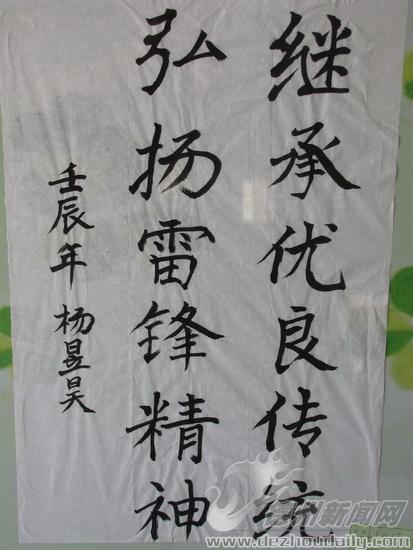 继承优良传统
弘扬雷锋精神
壬辰年 杨昱昊
德州新闻网
www.dezhoudaily.com